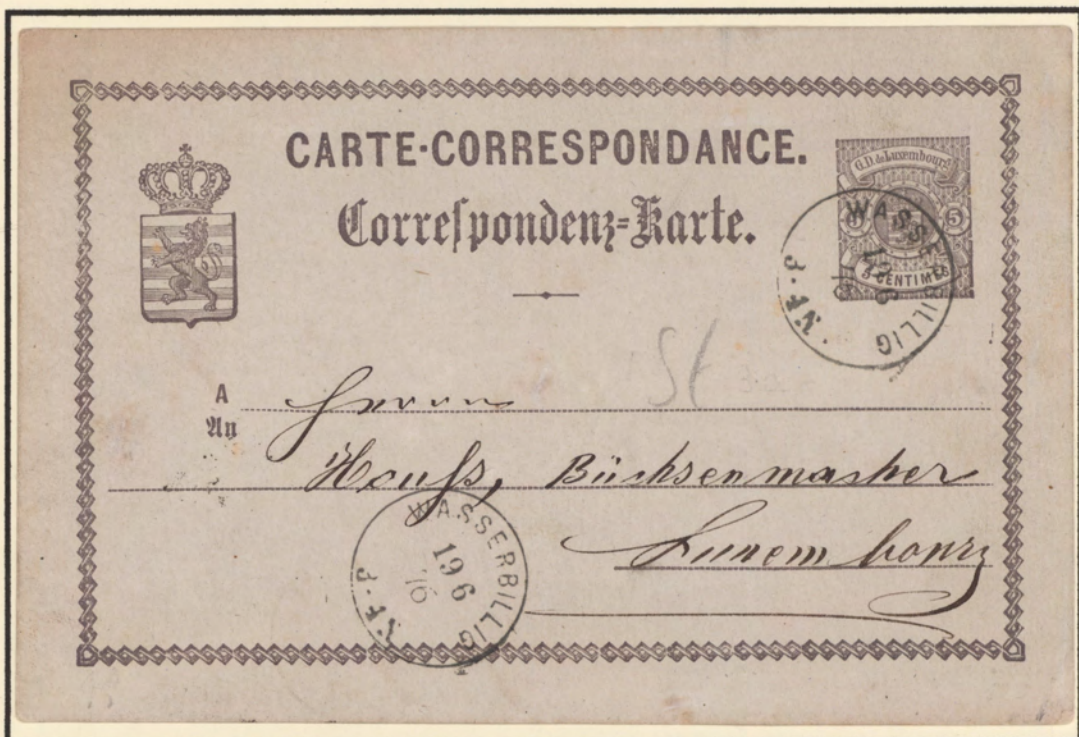 CARTE-CORRESPONDANCE.
Correſpondenz-Karte.
G.D. de Luxembourg
5
5 CENTIMES
WASSERBILLIG
St
A
An
Herrn
Büchsenmacher
Luxembourg
WASSERBILLIG
19 6
76